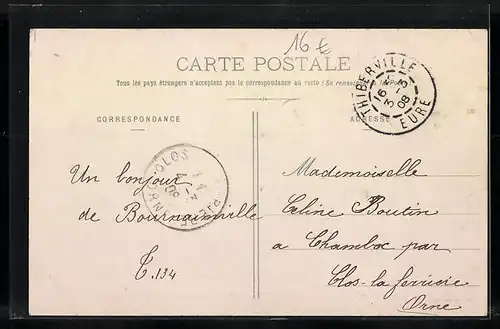 16 €
CARTE POSTALE
Tous les pays étrangers n'acceptent pas la correspondance au recto (Se renseigner à la Poste)
CORRESPONDANCE
ADRESSE
THIBERVILLE
16
3 -3
08
EURE
GLOS
08
Un bonjour
de Bournainville
T. 134
Mademoiselle
Celine Boutin
a Chamboc par
Glos-la ferriere
Orne